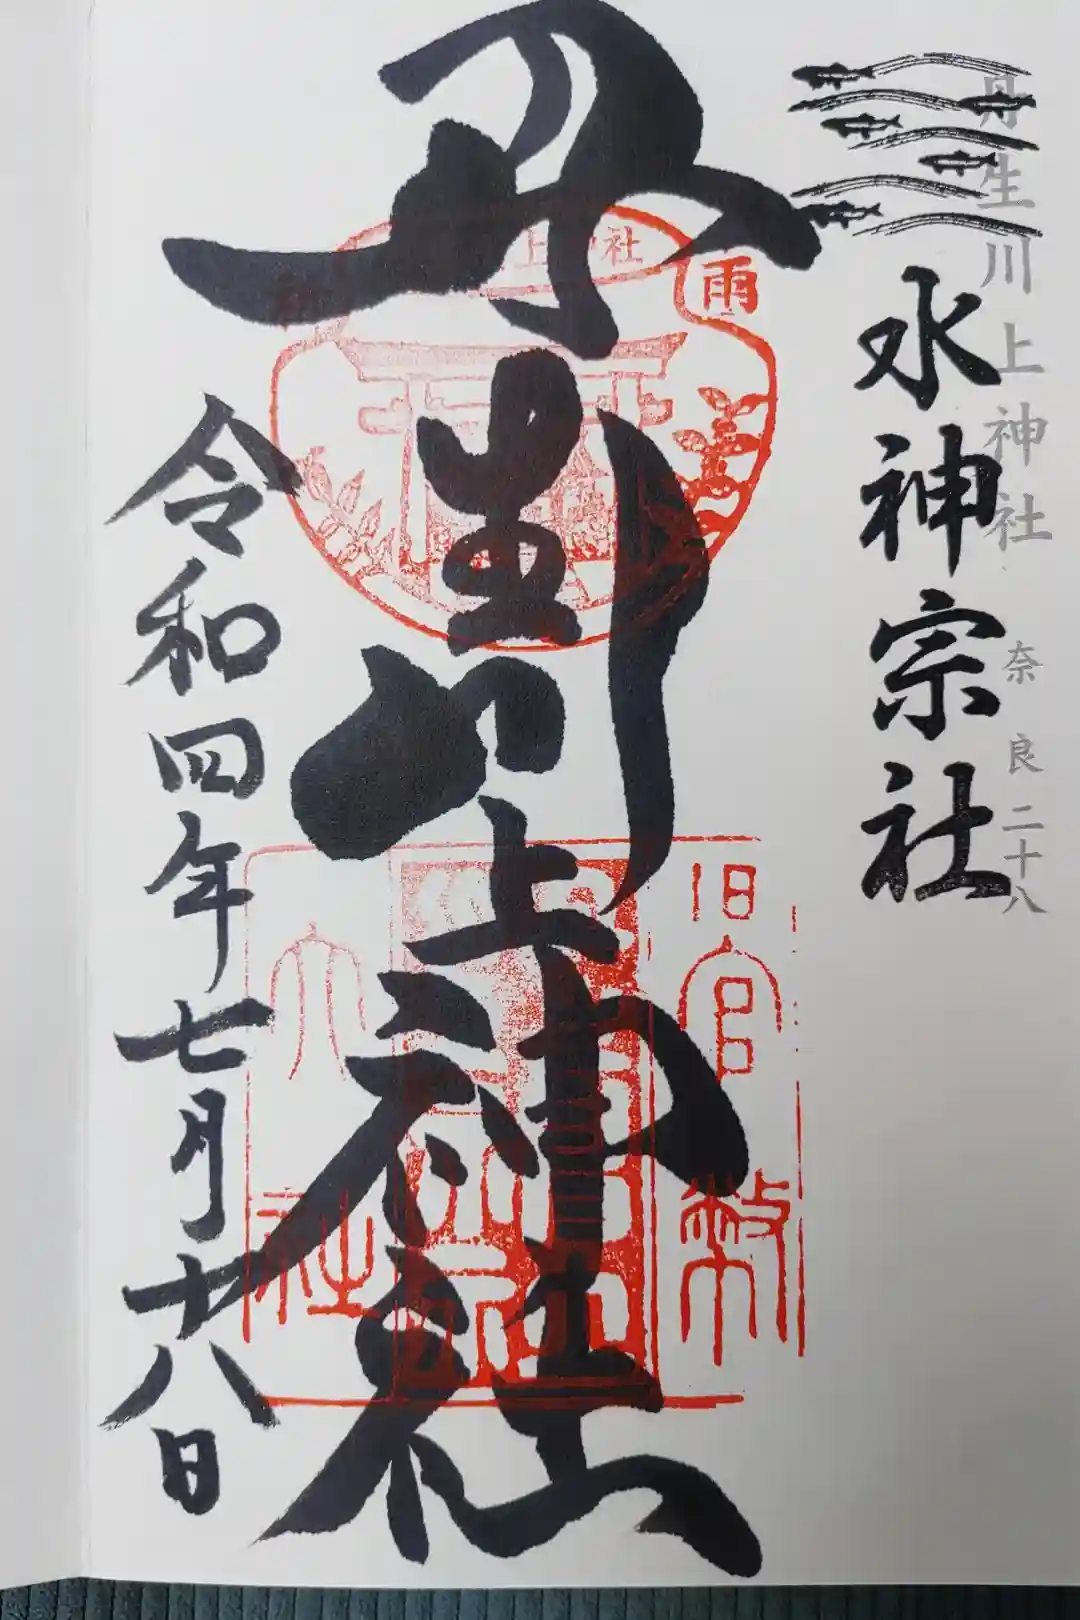 丹生川上神社 奈良二十八
水神宗社
丹生川上神社
令和四年七月十八日
雨
上 社
旧官幣
大社